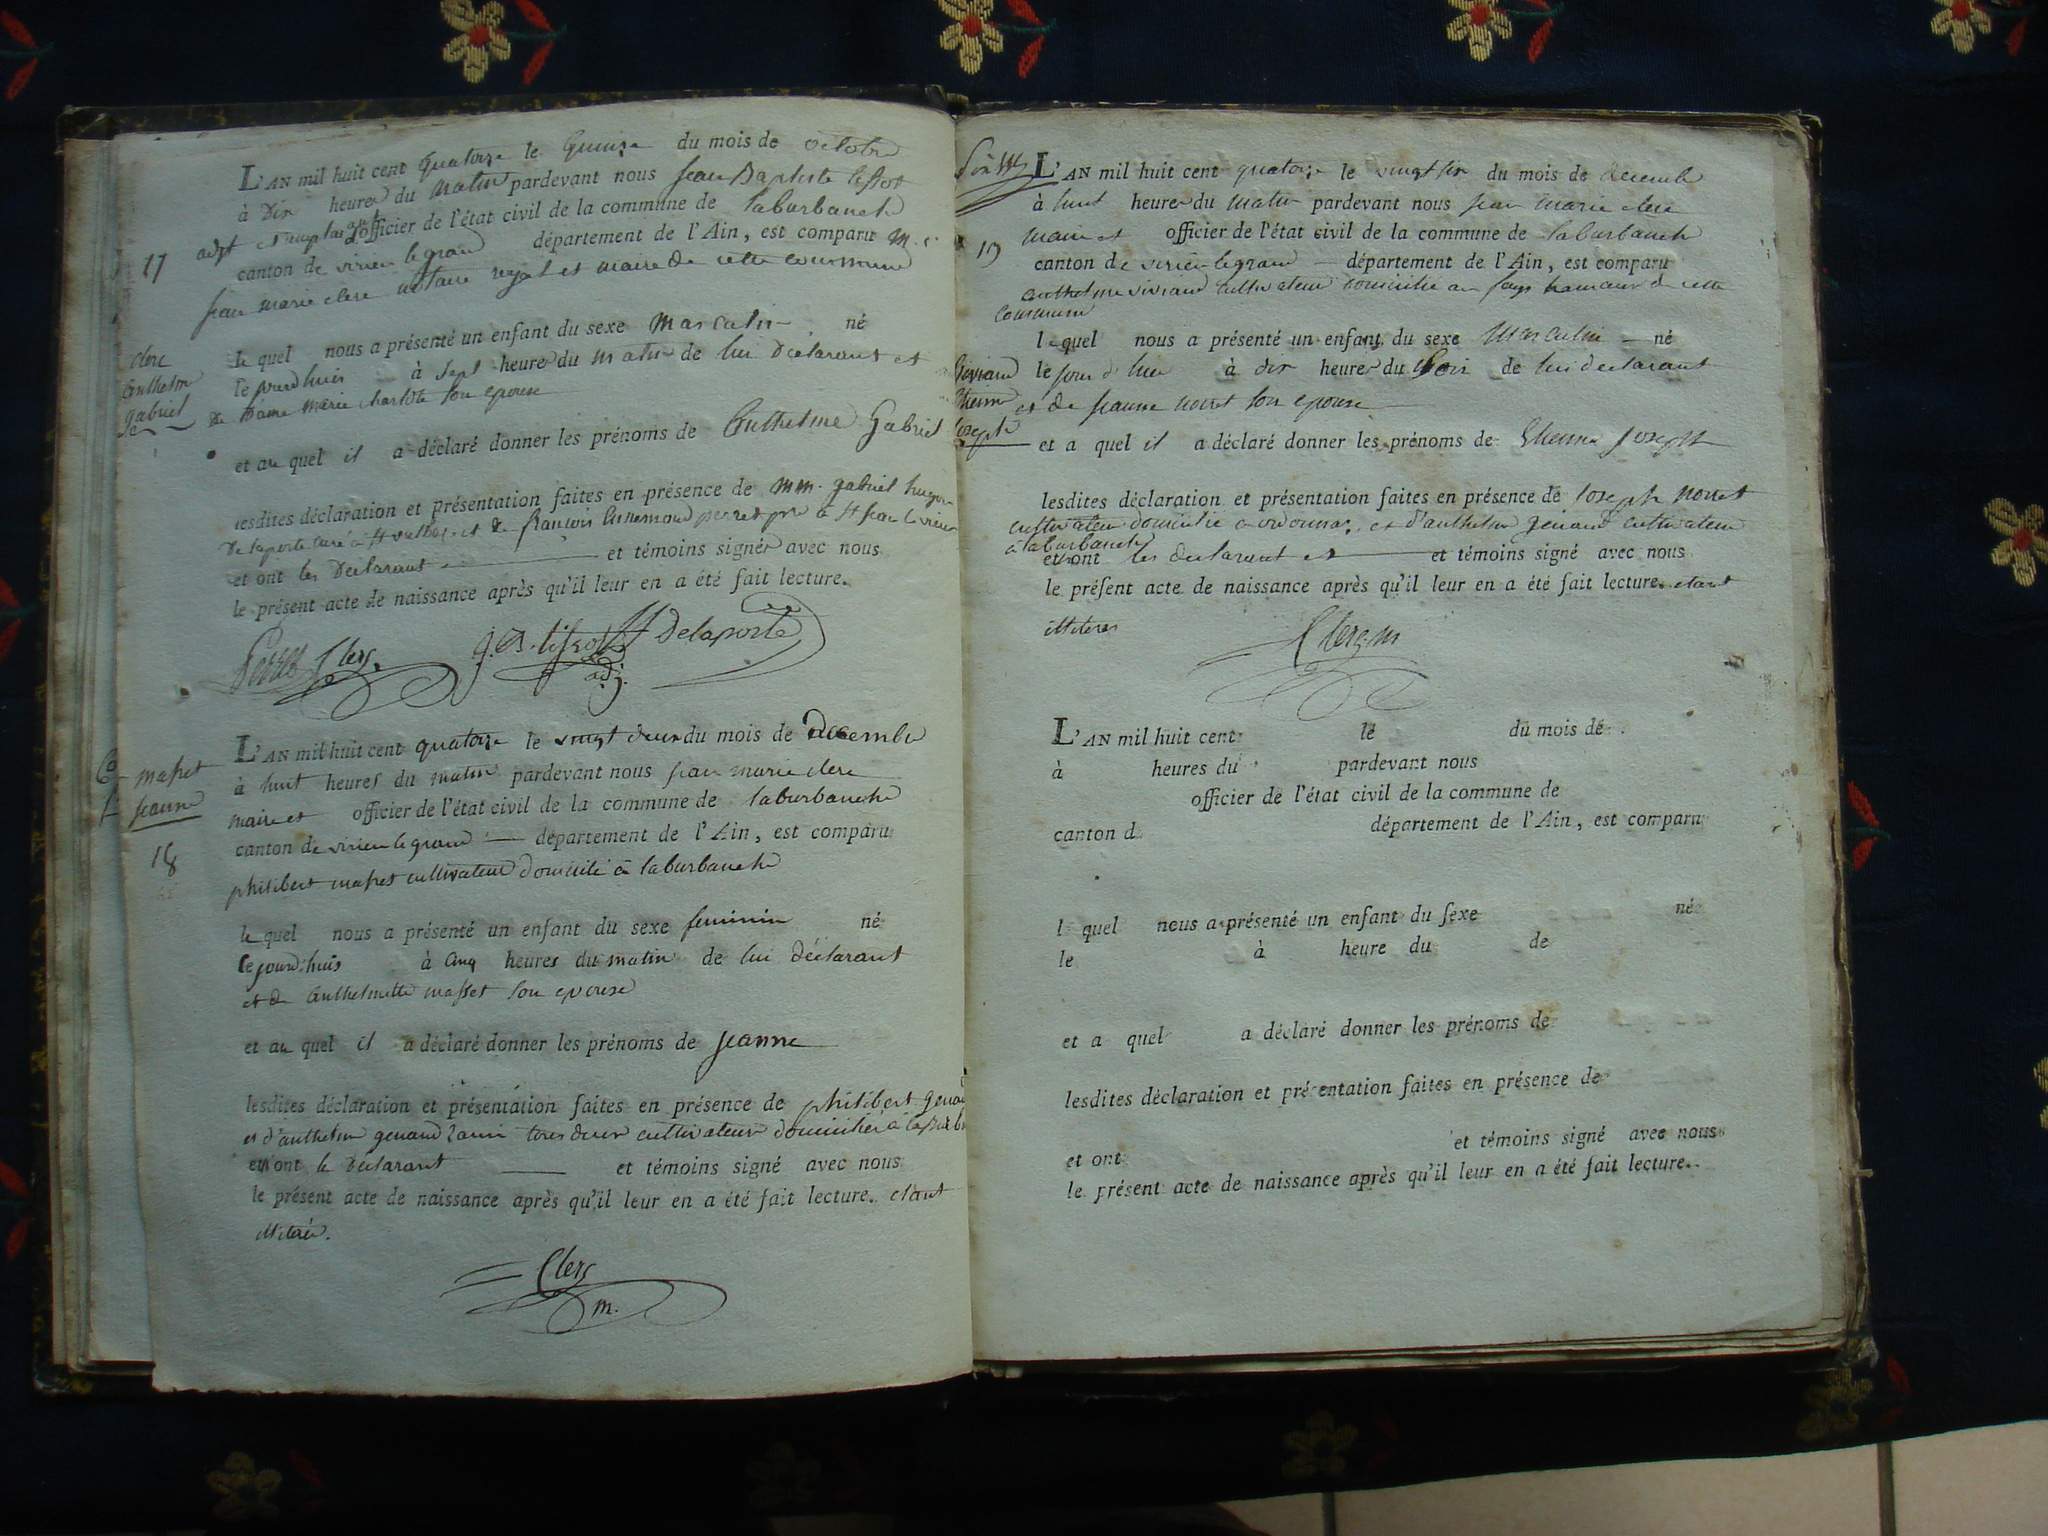 L'AN mil huit cent quatorze le quinze du mois de octobre
à Dix heures du matin pardevant nous jean Baptiste
adjt officier de l'état civil de la commune de laburbanche
17
canton de virieu le grand département de l'Ain, est comparu M.
jean marie clerc notaire royal et maire de cette commune
clerc
anthelme
gabriel
le quel nous a présenté un enfant du sexe masculin né
le jourd'huis à sept heures du matin de lui Déclarant et
de Dame marie charlote son epouse
et au quel il a déclaré donner les prénoms de Anthelme Gabriel
lesdites déclaration et présentation faites en présence de mm. gabriel
Delaporte curé à et de françois perret à st jean le vieux
et ont les Déclarant et témoins signés avec nous
le présent acte de naissance après qu'il leur en a été fait lecture.
Perret Clerc J. B. Delaporte
adj.
L'AN mil huit cent quatorze le vingt deux du mois de Decembre
masset
jeanne
18
à huit heures du matin pardevant nous jean marie clerc
maire et officier de l'état civil de la commune de laburbanche
canton de virieu le grand département de l'Ain, est comparu
philibert masset cultivateur domicilié à laburbanche
le quel nous a présenté un enfant du sexe feminin né
le jourd'huis à cinq heures du matin de lui déclarant
et de Anthelmette masset son epouse
et au quel il a déclaré donner les prénoms de jeanne
lesdites déclaration et présentation faites en présence de philibert
et d'anthelme genand tous deux cultivateurs domiciliés à
et ont le Déclarant et témoins signé avec nous
le présent acte de naissance après qu'il leur en a été fait lecture. etant
illiterés.
Clerc
m.
L'AN mil huit cent quatorze le vingt six du mois de decembre
à huit heures du matin pardevant nous jean marie clerc
maire et officier de l'état civil de la commune de laburbanche
19
canton de virieu le grand département de l'Ain, est comparu
anthelme viviand cultivateur domicilié au hameau de cette
commune
l equel nous a présenté un enfant du sexe masculin né
viviand
Etienne
joseph
le jour d'hier à dix heures du soir de lui declarant
et de jeanne noiret son epouse
et a quel il a déclaré donner les prénoms de Etienne joseph
lesdites déclaration et présentation faites en présence de joseph noiret
cultivateur domicilié à ordonnaz, et d'anthelme genand cultivateur
à laburbanche
et ont les declarant et et témoins signé avec nous
le présent acte de naissance après qu'il leur en a été fait lecture. etant
illiterés
Clerc m
L'AN mil huit cent le du mois de
à heures du pardevant nous
officier de l'état civil de la commune de
canton d département de l'Ain, est comparu
l quel nous a présenté un enfant du sexe né
le à heure du de
et a quel a déclaré donner les prénoms de
lesdites déclaration et présentation faites en présence de
et ont et témoins signé avec nous
le présent acte de naissance après qu'il leur en a été fait lecture.